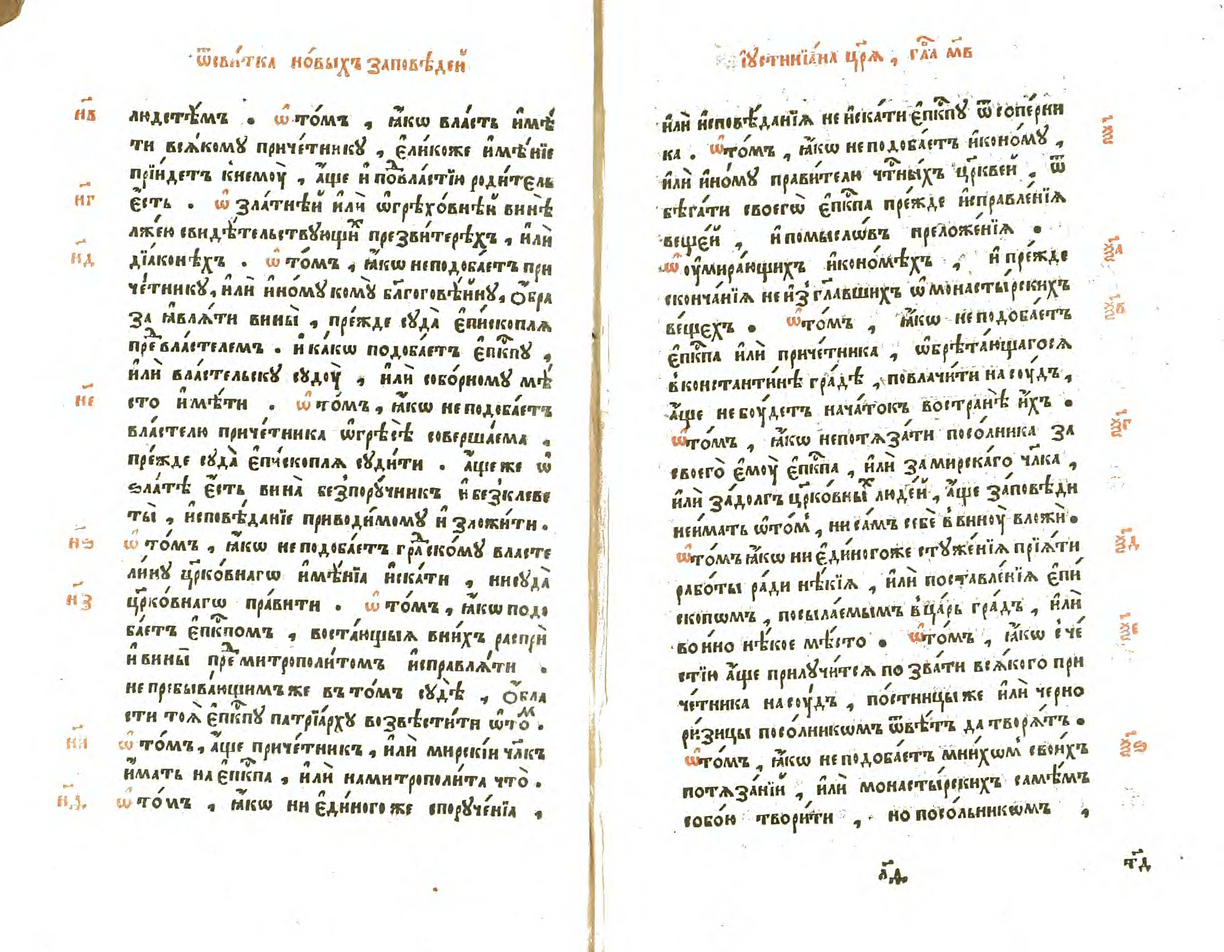 ѿсви́тка но́выхъ за́повѣдей
н҃в
людстѣ́мъ . ѡ҆ то́мъ , ꙗ҆́кѡ вла́сть и҆мѣ́
ти вся́кому приче́тнику , є҆ли́коже и҆мѣ́нїе
прїи́детъ кнемꙋ̀ , а҆́ще и҆ поⷣвла́стїю роди́тель
н҃г
є҆́сть . ѡ҆ зла́тнѣй и҆лѝ ѡ҆грѣхо́внѣй винѣ̀
лже́ю свидѣ́тельствующиⷯ презви́терѣхъ , и҆лѝ
н҃д
дїа́конѣхъ . ѡ҆ то́мъ , ꙗ҆́кѡ неподоба́етъ при
че́тнику, и҆лѝ и҆но́му кому̀ бл҃гоговѣ́йну, ѻ҆́бра
за ꙗ҆вля́ти вины̀ , пре́жде суда̀ є҆пи́скоплѧ
преⷣ вла́стелем . и҆ ка́кѡ подоба́етъ є҆пⷭ҇кпу ,
и҆лѝ вла́стельску судоу̀ , и҆лѝ собо́рному мѣ́
н҃е
сто и҆мѣ́ти . ѡ҆ то́мъ , ꙗ҆́кѡ неподоба́етъ
вла́стелю приче́тника ѡ҆грѣсѣ̀ соверша́ема ,
пре́жде суда̀ є҆пи́скоплѧ суди́ти . а҆́ще же ѡ҆
ѕла́тѣ є҆́сть вина̀ безпору́чникъ и҆ безклеве
ты̀ , и҆сповѣ́данїе приводи́мому и҆ зложи́ти .
н҃ѕ
ѡ҆ то́мъ , ꙗ҆́кѡ неподоба́етъ граⷣско́му вла́сте
лину цр҃ко́внагѡ и҆мѣ́нїа и҆ска́ти , нисуда̀
н҃з
цр҃ко́внагѡ пра́вити . ѡ҆ то́мъ , ꙗ҆́кѡ подо
ба́етъ є҆пⷭ҇кпомъ , воста́ющыя вни́хъ ра́спри
и҆ вины̀ преⷣ митрополи́томъ и҆справля́ти .
не пребыва́ющимъ же въ то́мъ судѣ̀ , ѻ҆́бла
сти тоѧ̀ є҆пⷭ҇кпу патрїа́рху возвѣсти́ти ѡ҆то́ⷨ .
н҃и
ѡ҆ то́мъ , а҆́ще приче́тникъ , и҆лѝ мирскі́и чл҃къ
и҆́мать на є҆пⷭ҇кпа , и҆лѝ намитрополи́та что̀ .
н҃ѳ
ѡ҆ то́мъ , ꙗ҆́кѡ ни є҆ди́ного же спору́ченїя ,
і҆устинїа́на цр҃ѧ̀ , гла҃а м҃в
и҆лѝ и҆сповѣ́данїѧ не и҆ска́ти є҆пⷭ҇кпу ѿ сопе́рни
ѯ҃
ка . ѡ҆ то́мъ , ꙗ҆́кѡ не подоба́етъ и҆коно́му ,
и҆лѝ и҆но́му прави́телю чⷭ҇тны́хъ цр҃кве́й , ѿ
бѣга́ти своегѡ̀ є҆пⷭ҇кпа пре́жде и҆справле́нїѧ
веще́й , и҆ помысло́въ преложе́нїѧ .
ѯ҃а
ѡ҆ оу҆мира́ющихъ и҆коно́мѣхъ , и҆ пре́жде
сконча́нїѧ не и҆згла́вшихъ ѡ҆ монасты́рскихъ
ѯ҃в
ве́щехъ . ѡ҆ то́мъ , ꙗ҆́кѡ не подоба́етъ
є҆пⷭ҇кпа и҆лѝ приче́тника , ѡ҆брѣта́ющагосѧ
в константи́нѣ гра́дѣ , повлачи́ти на соу́дъ ,
а҆́ще не бо́удетъ нача́токъ востранѣ̀ и҆́хъ .
ѯ҃г
ѡ҆ то́мъ , ꙗ҆́кѡ непотѧза́ти посо́лника за
своего̀ є҆моу̀ є҆пⷭ҇кпа , и҆лѝ за мирска́го чл҃ка ,
и҆лѝ за́ долгъ цр҃ко́вныⷯ люде́й , а҆́ще за́повѣди
не и҆́мать ѡ҆то́ⷨ , ни са́мъ себѐ ввиноу̀ вложѝ .
ѯ҃д
ѡ҆ то́мъ ꙗ҆́кѡ ни є҆ди́ного же стуже́нїѧ прїѧ́ти
рабо́ты ра́ди нѣ́кїѧ , и҆лѝ поставле́нїѧ є҆пи́
скопѡмъ , посыла́емымъ в ца́рь гра́дъ , и҆лѝ
ѯ҃е
во и҆́но нѣ́кое мѣ́сто . ѡ҆ то́мъ , ꙗ҆́кѡ с че́
стїю а҆́ще прилучи́тсѧ позва́ти всѧ́кого при
че́тника на соу́дъ , по́стницы же и҆лѝ черно
ри́зицы посо́лникѡмъ ѿвѣ́тъ да творѧ́тъ .
ѯ҃ѕ
ѡ҆ то́мъ , ꙗ҆́кѡ не подоба́етъ мни́хѡмъ свои́хъ
потѧза́нїй , и҆лѝ монасты́рскихъ самѣ́мъ
собо́ю твори́ти , но посо́льникѡмъ ,
л҃д
т҃д